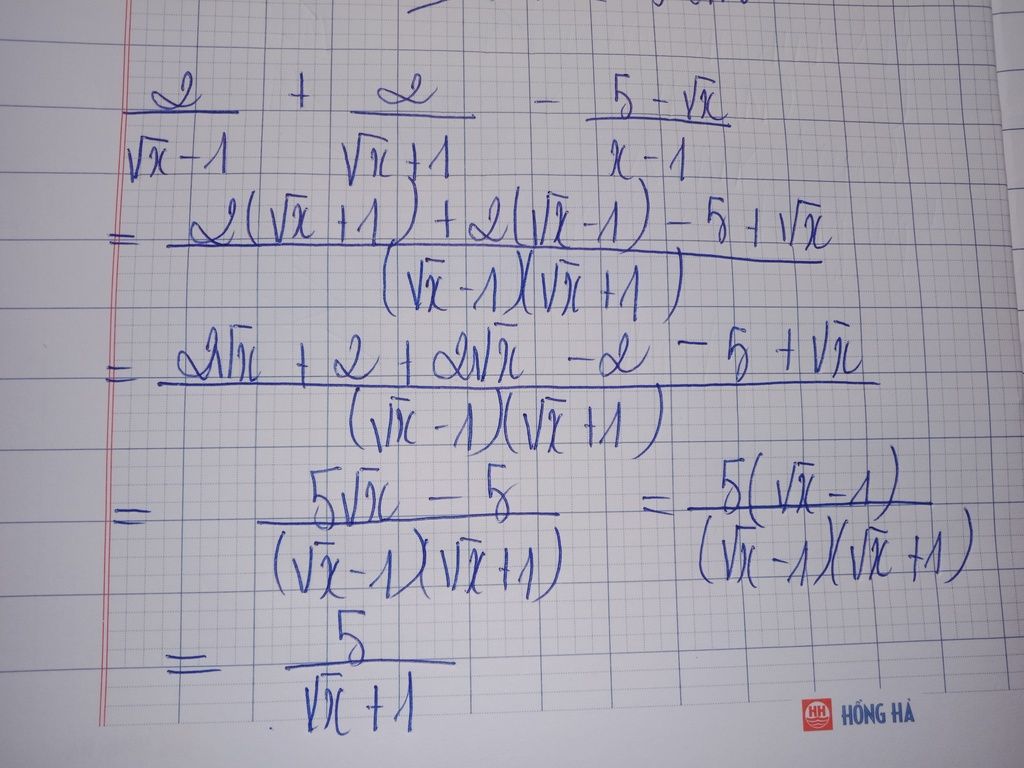 2/(√x - 1) + 2/(√x + 1) - (5 - √x)/(x - 1)
= (2(√x + 1) + 2(√x - 1) - 5 + √x)/((√x - 1)(√x + 1))
= (2√x + 2 + 2√x - 2 - 5 + √x)/((√x - 1)(√x + 1))
= (5√x - 5)/((√x - 1)(√x + 1)) = (5(√x - 1))/((√x - 1)(√x + 1))
= 5/(√x + 1)
HH HỒNG HÀ